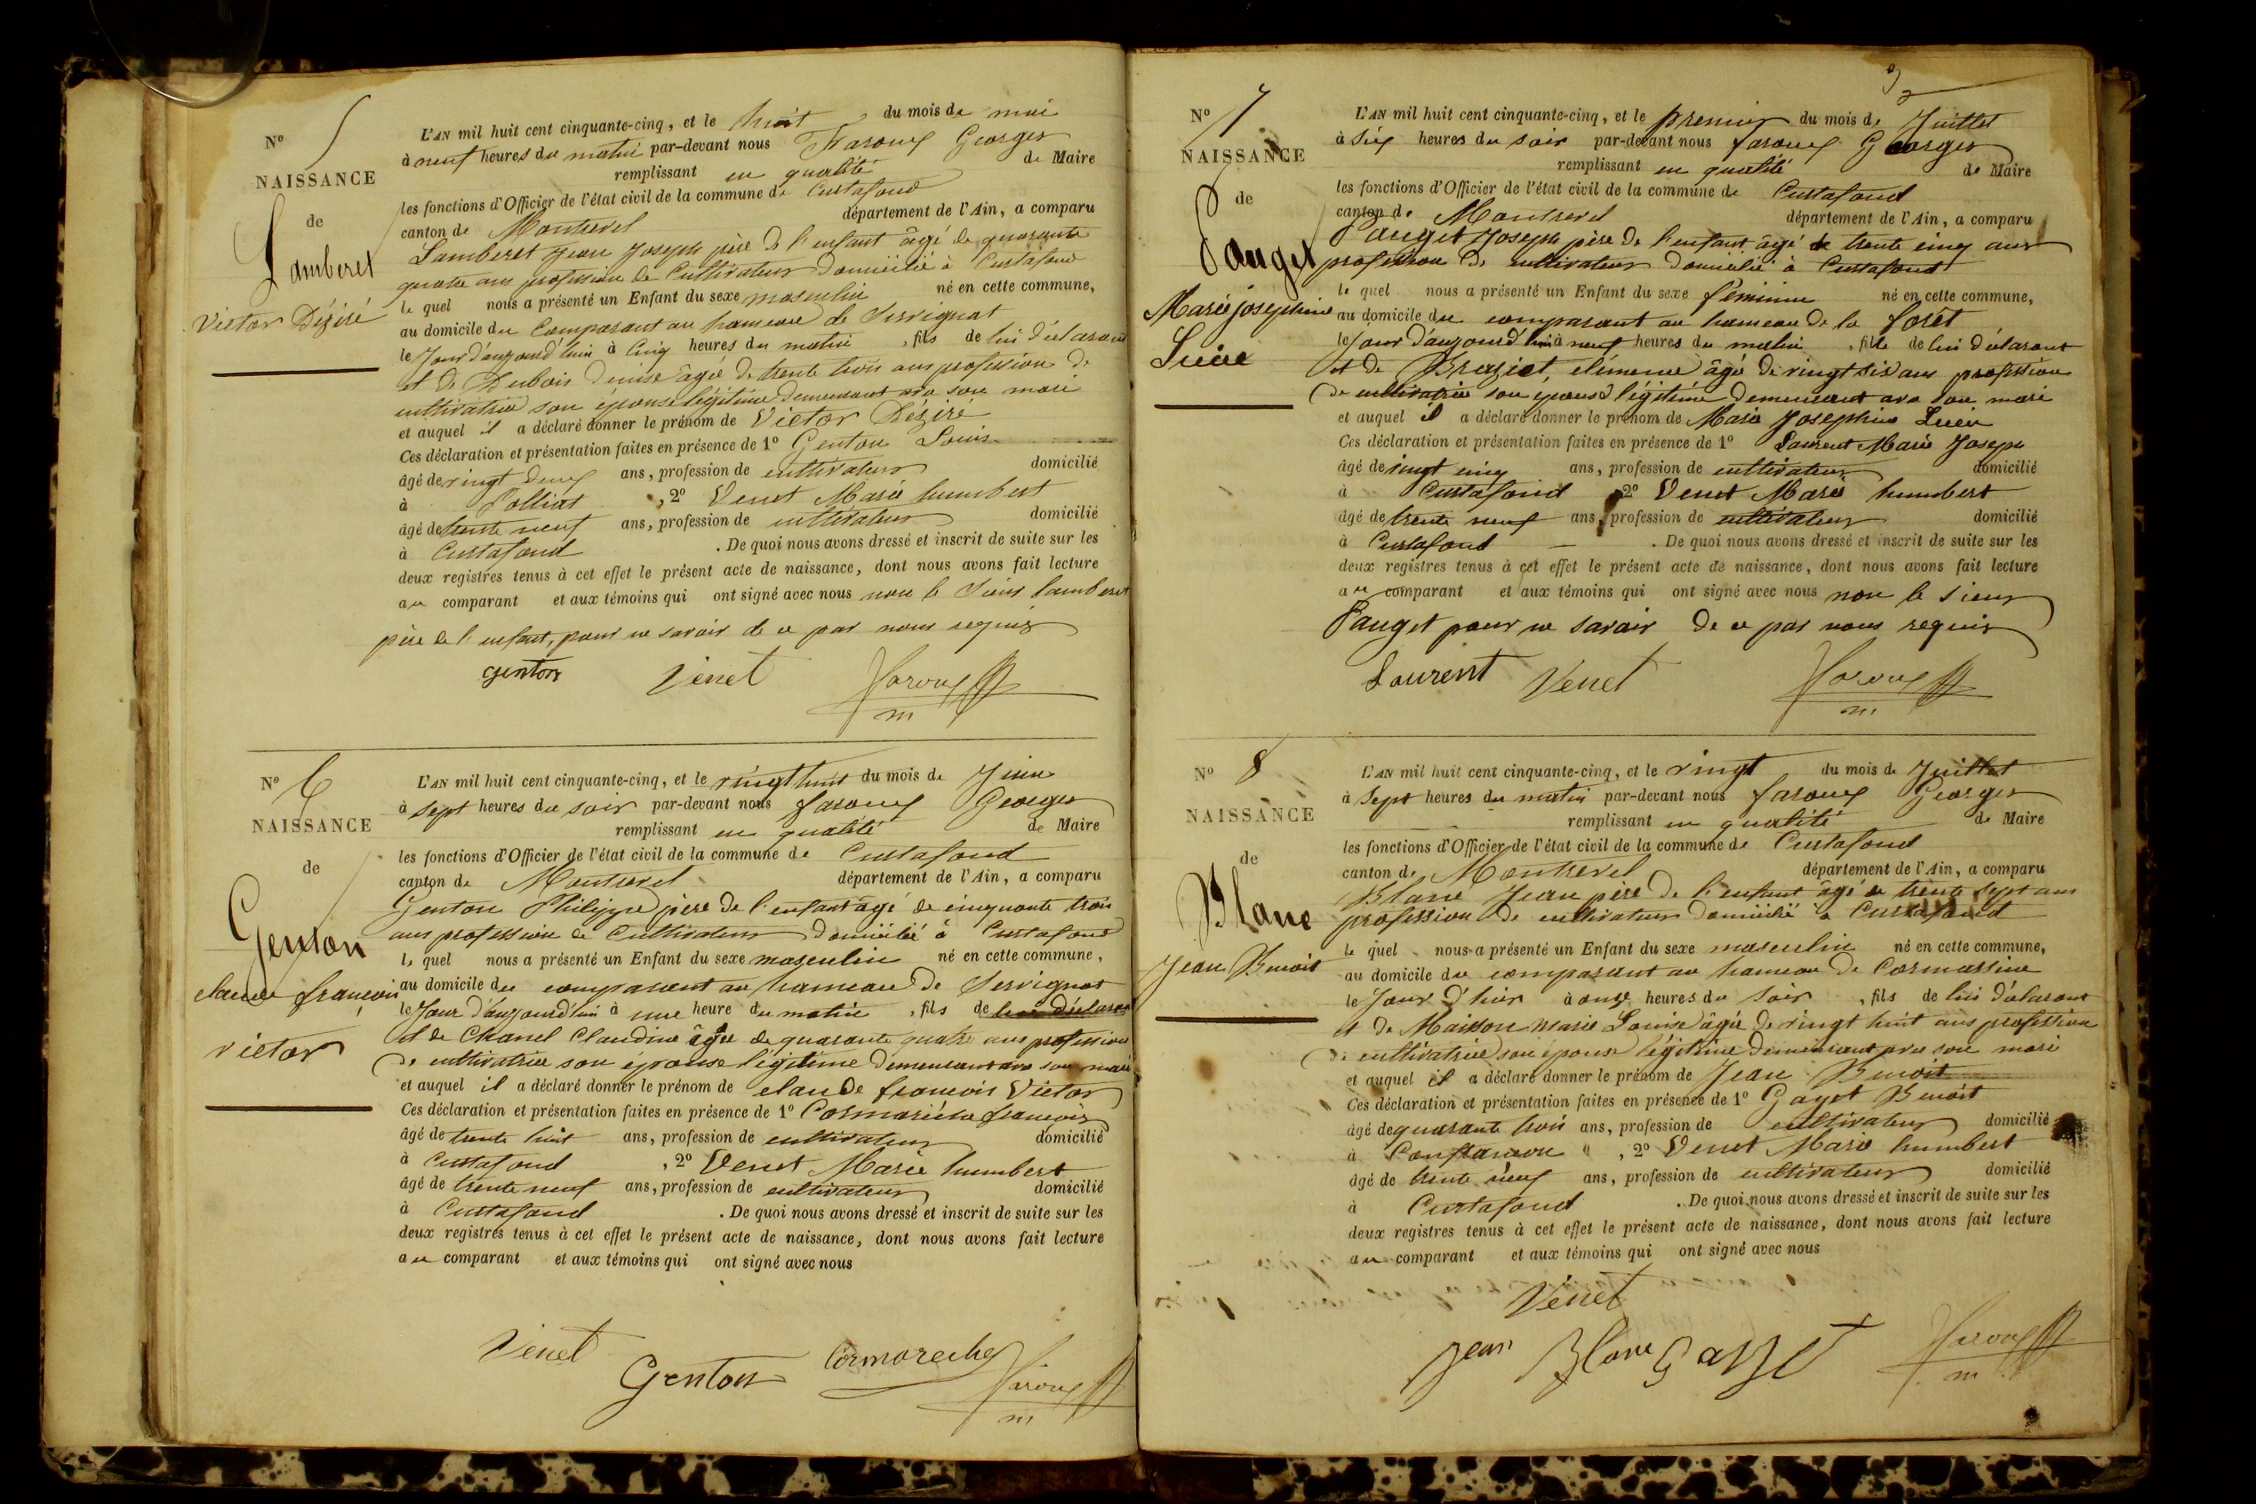 N° 5
NAISSANCE
de
Lamberet
Victor Déziré
L'AN mil huit cent cinquante-cinq, et le huit du mois de mai
à neuf heures du matin par-devant nous Faroux Georges
remplissant en qualité de Maire
les fonctions d'Officier de l'état civil de la commune de Curtafond
canton de Montrevel département de l'Ain, a comparu
Lamberet Jean Joseph père de l'enfant âgé de quarante
quatre ans profession de Cultivateur domicilié à Curtafond
le quel nous a présenté un Enfant du sexe masculin né en cette commune,
au domicile du Comparant au hameau de Servignat
le Jour d'aujourd'hui à Cinq heures du matin, fils de lui déclarant
et de Dubois Denise âgée de trente trois ans profession de
cultivatrice son épouse légitime demeurant avec son mari
et auquel il a déclaré donner le prénom de Victor Déziré
Ces déclaration et présentation faites en présence de 1° Genton Louis
âgé de vingt deux ans, profession de cultivateur domicilié
à Polliat, 2° Venet Marie humbert
âgé de trente neuf ans, profession de cultivateur domicilié
à Curtafond. De quoi nous avons dressé et inscrit de suite sur les
deux registres tenus à cet effet le présent acte de naissance, dont nous avons fait lecture
au comparant et aux témoins qui ont signé avec nous non le Sieur Lamberet
père de l'enfant, pour ne savoir de ce par nous requis
genton Vénet Faroux
m
N° 6
NAISSANCE
de
Genton
claude françois
victor
L'AN mil huit cent cinquante-cinq, et le vingt huit du mois de Juin
à sept heures du soir par-devant nous faroux Georges
remplissant en qualité de Maire
les fonctions d'Officier de l'état civil de la commune de Curtafond
canton de Montrevel département de l'Ain, a comparu
Genton Philippe père de l'enfant âgé de cinquante trois
ans profession de Cultivateur domicilié à Curtafond
le quel nous a présenté un Enfant du sexe masculin né en cette commune,
au domicile du comparant au hameau de Servignat
le Jour d'aujourd'hui à une heure du matin, fils de lui déclarant
et de Chanel Claudine âgée de quarante quatre ans profession
de cultivatrice son épouse légitime demeurant avec son mari
et auquel il a déclaré donner le prénom de claude françois Victor
Ces déclaration et présentation faites en présence de 1° Cormarèche françois
âgé de trente huit ans, profession de cultivateur domicilié
à Curtafond, 2° Venet Marie humbert
âgé de trente neuf ans, profession de cultivateur domicilié
à Curtafond. De quoi nous avons dressé et inscrit de suite sur les
deux registres tenus à cet effet le présent acte de naissance, dont nous avons fait lecture
au comparant et aux témoins qui ont signé avec nous
Vénet Genton Cormareche Faroux
m
3
N° 7
NAISSANCE
de
Pauget
Marie joséphine
Lucie
L'AN mil huit cent cinquante-cinq, et le premier du mois de Juillet
à Six heures du soir par-devant nous faroux Georges
remplissant en qualité de Maire
les fonctions d'Officier de l'état civil de la commune de Curtafond
canton de Montrevel département de l'Ain, a comparu
Pauget Joseph père de l'enfant âgé de trente cinq ans
profession de cultivateur domicilié à Curtafond
le quel nous a présenté un Enfant du sexe féminin né en cette commune,
au domicile du comparant au hameau de la forêt
le Jour d'aujourd'hui à neuf heures du matin, fille de lui déclarant
et de Braziet, clémence âgée de vingt six ans profession
de cultivatrice son épouse légitime demeurant avec son mari
et auquel il a déclaré donner le prénom de Marie Joséphine Lucie
Ces déclaration et présentation faites en présence de 1° Laurent Marie Joseph
âgé de vingt cinq ans, profession de cultivateur domicilié
à Curtafond 2° Venet Marie humbert
âgé de trente neuf ans, profession de cultivateur domicilié
à Curtafond. De quoi nous avons dressé et inscrit de suite sur les
deux registres tenus à cet effet le présent acte de naissance, dont nous avons fait lecture
au comparant et aux témoins qui ont signé avec nous non le sieur
Pauget pour ne savoir de ce par nous requis
Laurent Vénet Faroux
m
N° 8
NAISSANCE
de
Blanc
Jean Benoit
L'AN mil huit cent cinquante-cinq, et le vingt du mois de Juillet
à Sept heures du matin par-devant nous faroux Georges
remplissant en qualité de Maire
les fonctions d'Officier de l'état civil de la commune de Curtafond
canton de Montrevel département de l'Ain, a comparu
Blanc Jean père de l'enfant âgé de trente Sept ans
profession de cultivateur domicilié à Curtafond
le quel nous a présenté un Enfant du sexe masculin né en cette commune,
au domicile du comparant au hameau de Cormassine
le Jour d'hier à onze heures du Soir, fils de lui déclarant
et de Maisson Marie Louise âgée de vingt huit ans profession
de cultivatrice son épouse légitime demeurant avec son mari
et auquel il a déclaré donner le prénom de Jean Benoit
Ces déclaration et présentation faites en présence de 1° Gayet Benoit
âgé de quarante trois ans, profession de cultivateur domicilié
à Confrançon, 2° Venet Marie humbert
âgé de trente neuf ans, profession de cultivateur domicilié
à Curtafond. De quoi nous avons dressé et inscrit de suite sur les
deux registres tenus à cet effet le présent acte de naissance, dont nous avons fait lecture
au comparant et aux témoins qui ont signé avec nous
Vénet
Jean Blanc Gayet Faroux
m